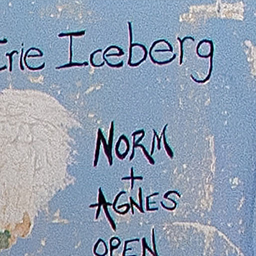 Erie Iceberg
NORM
+
AGNES
OPEN